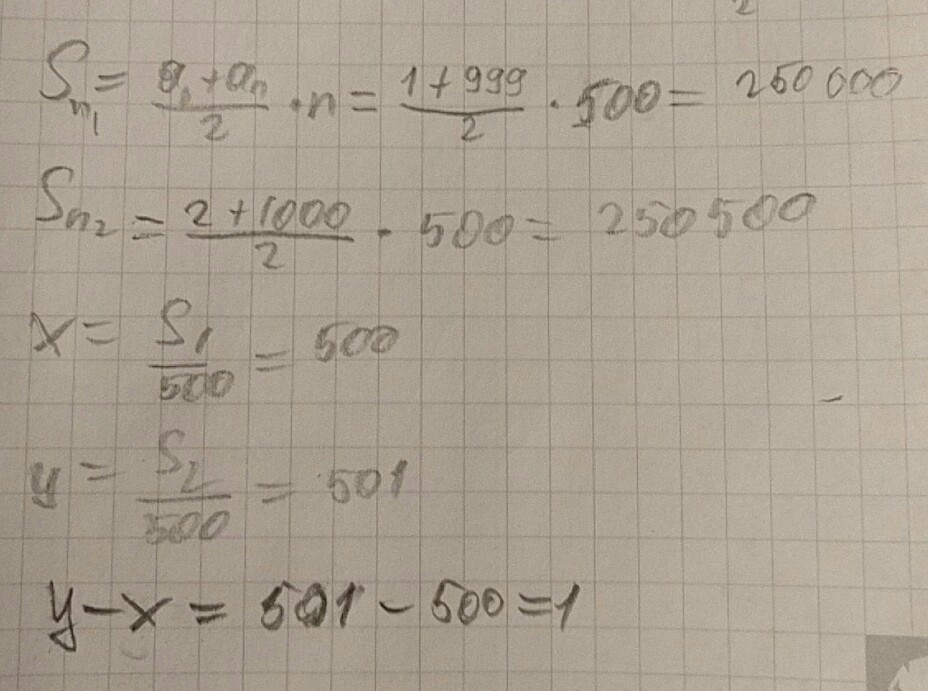 Sn₁ = a₁+aₙ/2 · n = 1+999/2 · 500 = 250 000
Sn₂ = 2+1000/2 · 500 = 250 500
x = S₁/500 = 500
y = S₂/500 = 501
y-x = 501 - 500 = 1